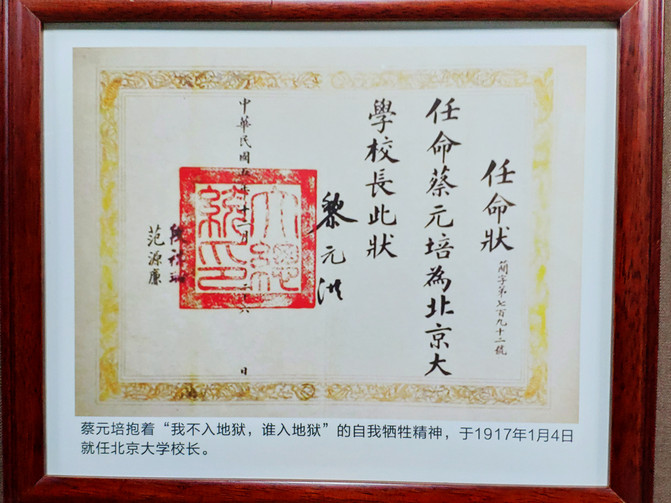 任命狀
簡字第七百九十二號
任命蔡元培為北京大
學校長此狀
黎元洪
大總統印
中華民國五年十二月二十六日
段祺瑞
范源廉
蔡元培抱着“我不入地狱，谁入地狱”的自我牺牲精神，于1917年1月4日
就任北京大学校长。